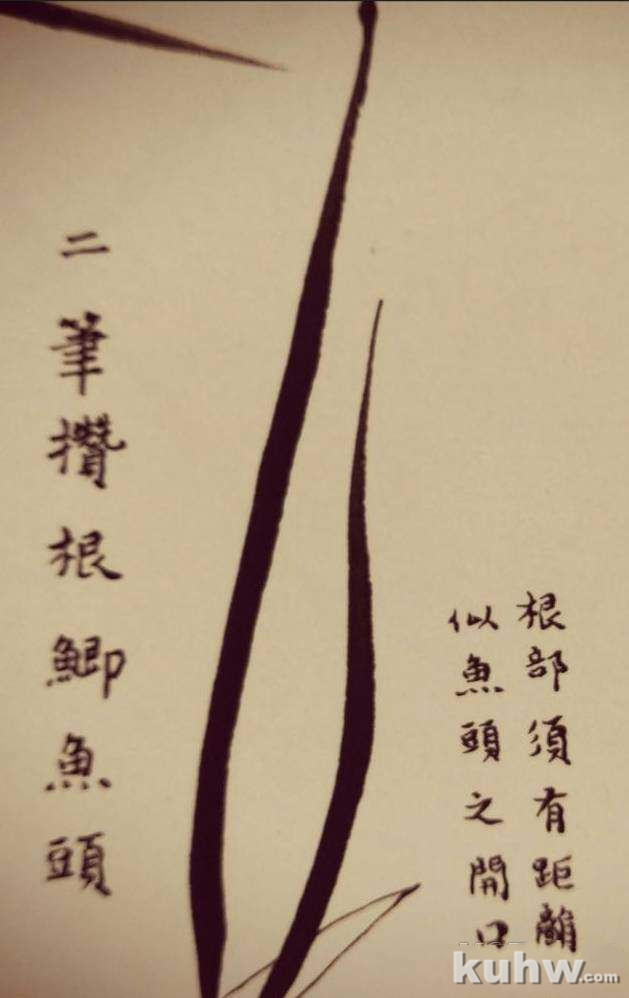 二筆攢根鯽魚頭
根部須有距離
似魚頭之開口
kuhw.com